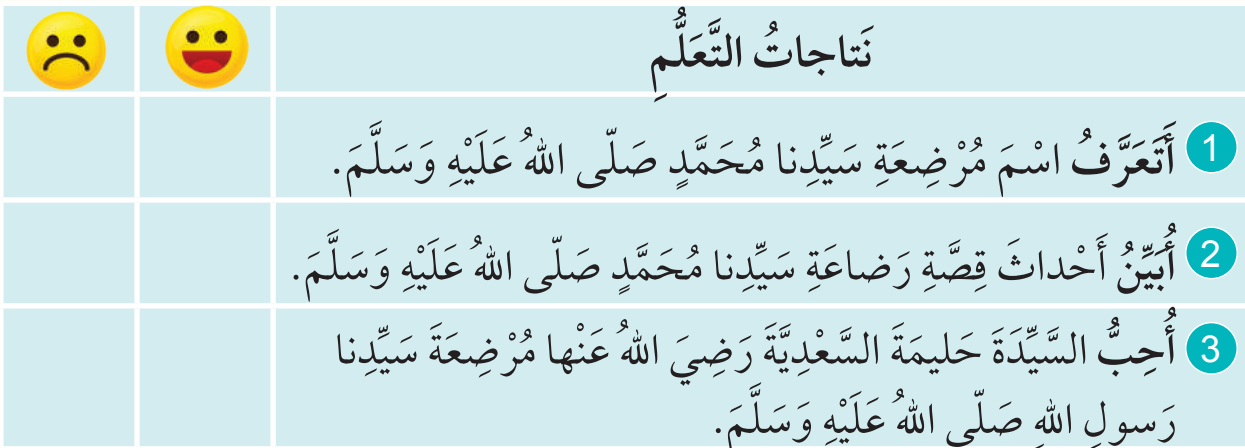 نَتاجاتُ التَّعَلُّمِ
1 أَتَعَرَّفُ اسْمَ مُرْضِعَةِ سَيِّدِنا مُحَمَّدٍ صَلّى اللهُ عَلَيْهِ وَسَلَّمَ.
2 أُبَيِّنُ أَحْداثَ قِصَّةِ رَضاعَةِ سَيِّدِنا مُحَمَّدٍ صَلّى اللهُ عَلَيْهِ وَسَلَّمَ.
3 أُحِبُّ السَّيِّدَةَ حَليمَةَ السَّعْدِيَّةَ رَضِيَ اللهُ عَنْها مُرْضِعَةَ سَيِّدِنا
رَسولِ اللهِ صَلّى اللهُ عَلَيْهِ وَسَلَّمَ.